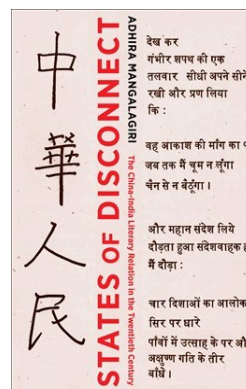 中
華
人
民
STATES OF DISCONNECT
The China-India Literary Relation in the Twentieth Century
ADHIRA MANGALAGIRI
देख कर
गंभीर शपथ की एक
तलवार सीधी अपने सीने
रखी और प्रण लिया
कि :
वह आकाश की माँग का
जब तक मैं चूम न लूँगा
चैन से न बैठूँगा ।
और महान संदेश लिये
दौड़ता हुआ संदेशवाहक
मैं दौड़ा :
चार दिशाओं का आलोक
सिर पर धारे
पाँवों में उत्साह के पर औ
अक्षुण्ण गति के तीर
बाँधे ।